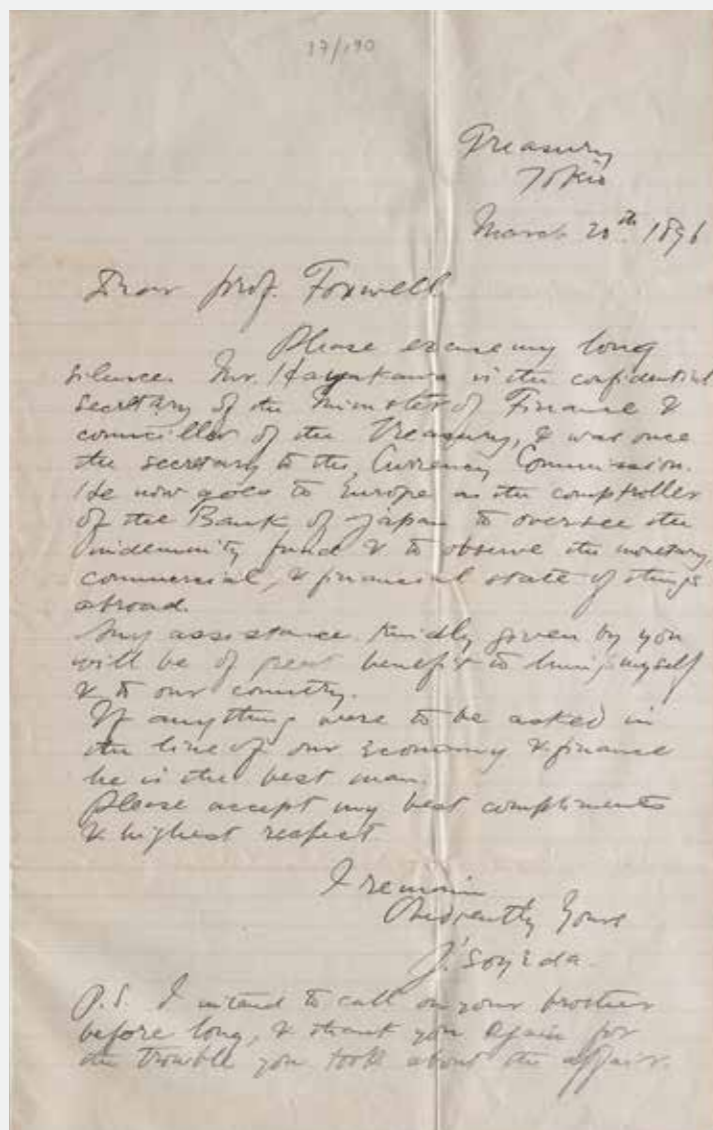 37/190
Treasury
Tokio
March 20th 1896
Dear Prof. Foxwell
Please excuse my long
silence. Mr. Hayakawa is the confidential
secretary of the Minister of Finance &
councillor of the Treasury, & was once
the secretary to the Currency Commission.
He now goes to Europe as the comptroller
of the Bank of Japan to oversee the
indemnity fund & to observe the monetary,
commercial, & financial state of things
abroad.
Any assistance kindly given by you
will be of great benefit to him, myself
& to our country.
If anything were to be asked in
the line of our Economy & finance
he is the best man.
Please accept my best compliments
& highest respect
I remain
Obediently Yours
J. Soyeda.
P.S. I intend to call on your brother
before long, & thank you again for
the trouble you took about the affair.